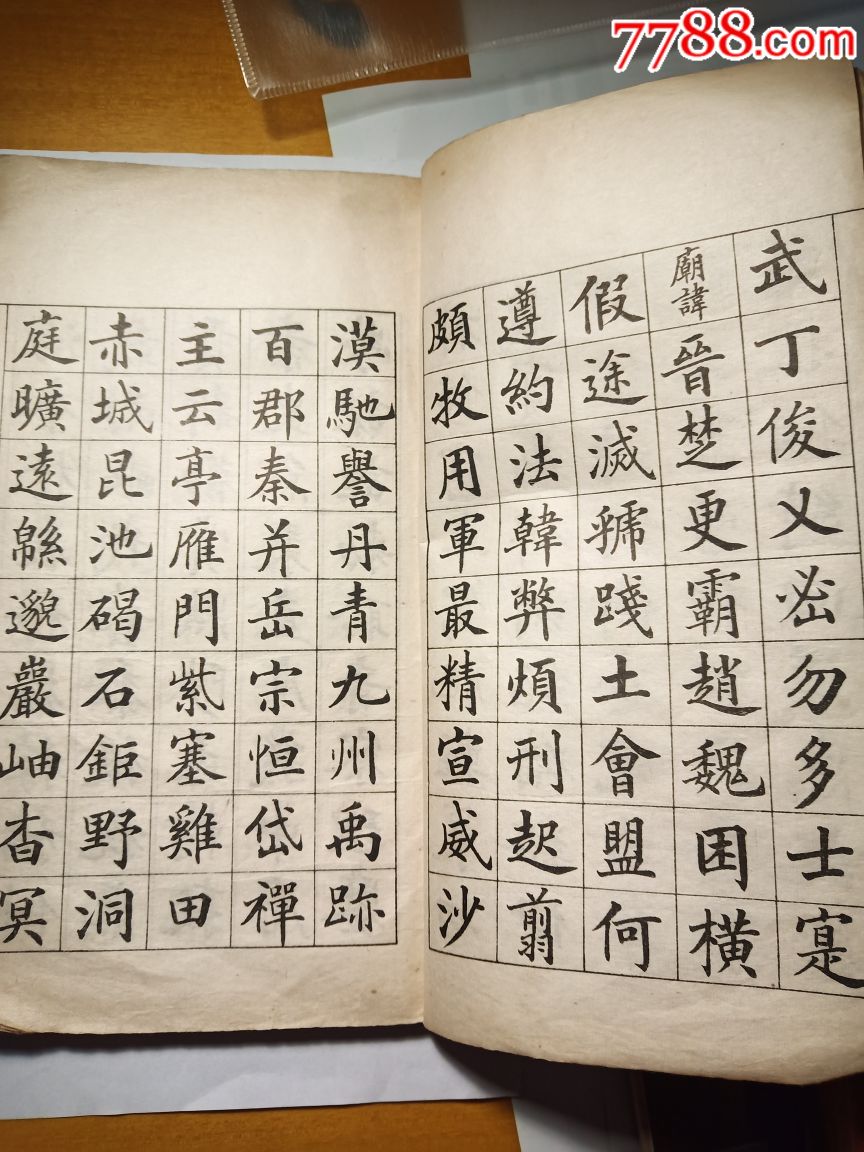 7788.com
武丁俊乂宓勿多士寔
廟諱晉楚更霸趙魏困橫
假途滅虢踐土會盟何
遵約法韓弊煩刑起翦
頗牧用軍最精宣威沙
漠馳譽丹青九州禹跡
百郡秦并岳宗恒岱禪
主云亭雁門紫塞雞田
赤城昆池碣石鉅野洞
庭曠遠緜邈巖岫杳冥